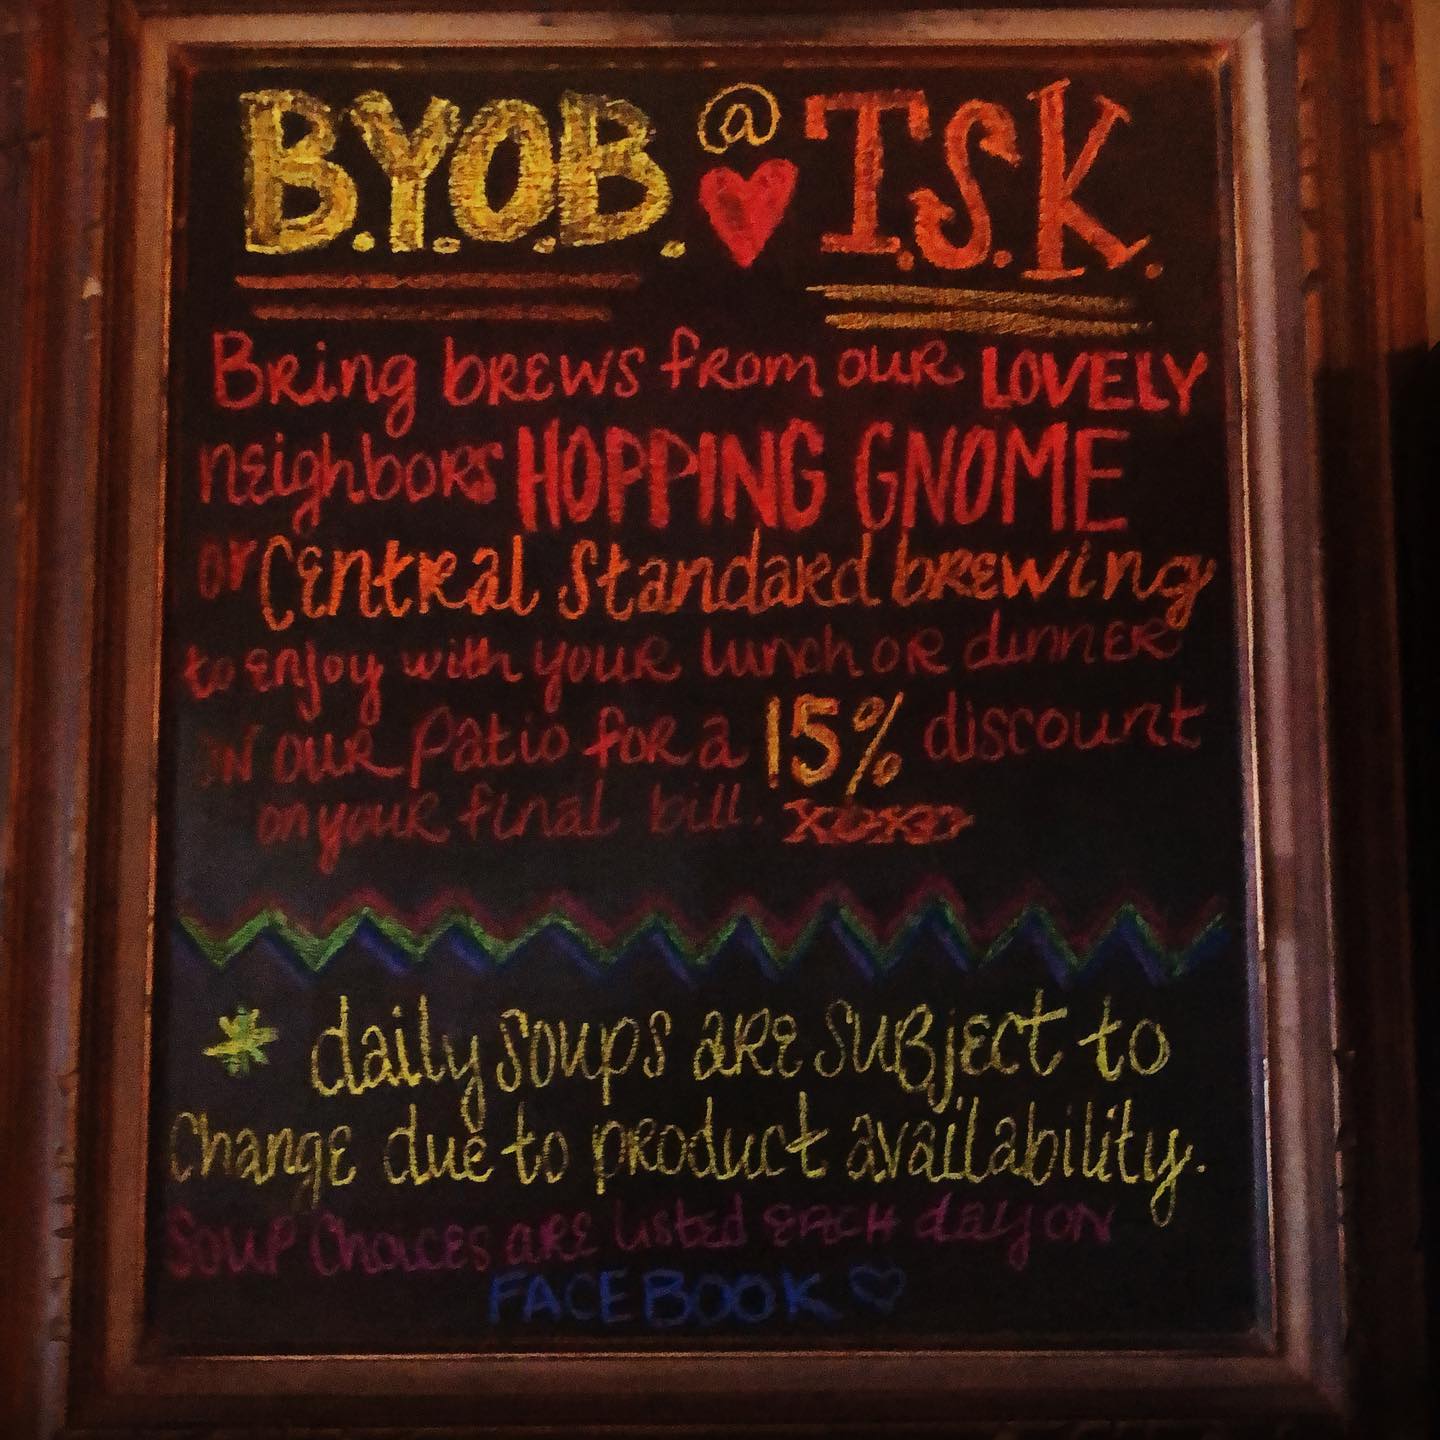 B.Y.O.B. @ T.S.K.
Bring brews from our LOVELY
neighbors HOPPING GNOME
or Central Standard brewing
to enjoy with your lunch or dinner
IN our patio for a 15% discount
on your final bill.
* daily soups are subject to
Change due to product availability.
Soup Choices are listed EACH day ON
FACEBOOK